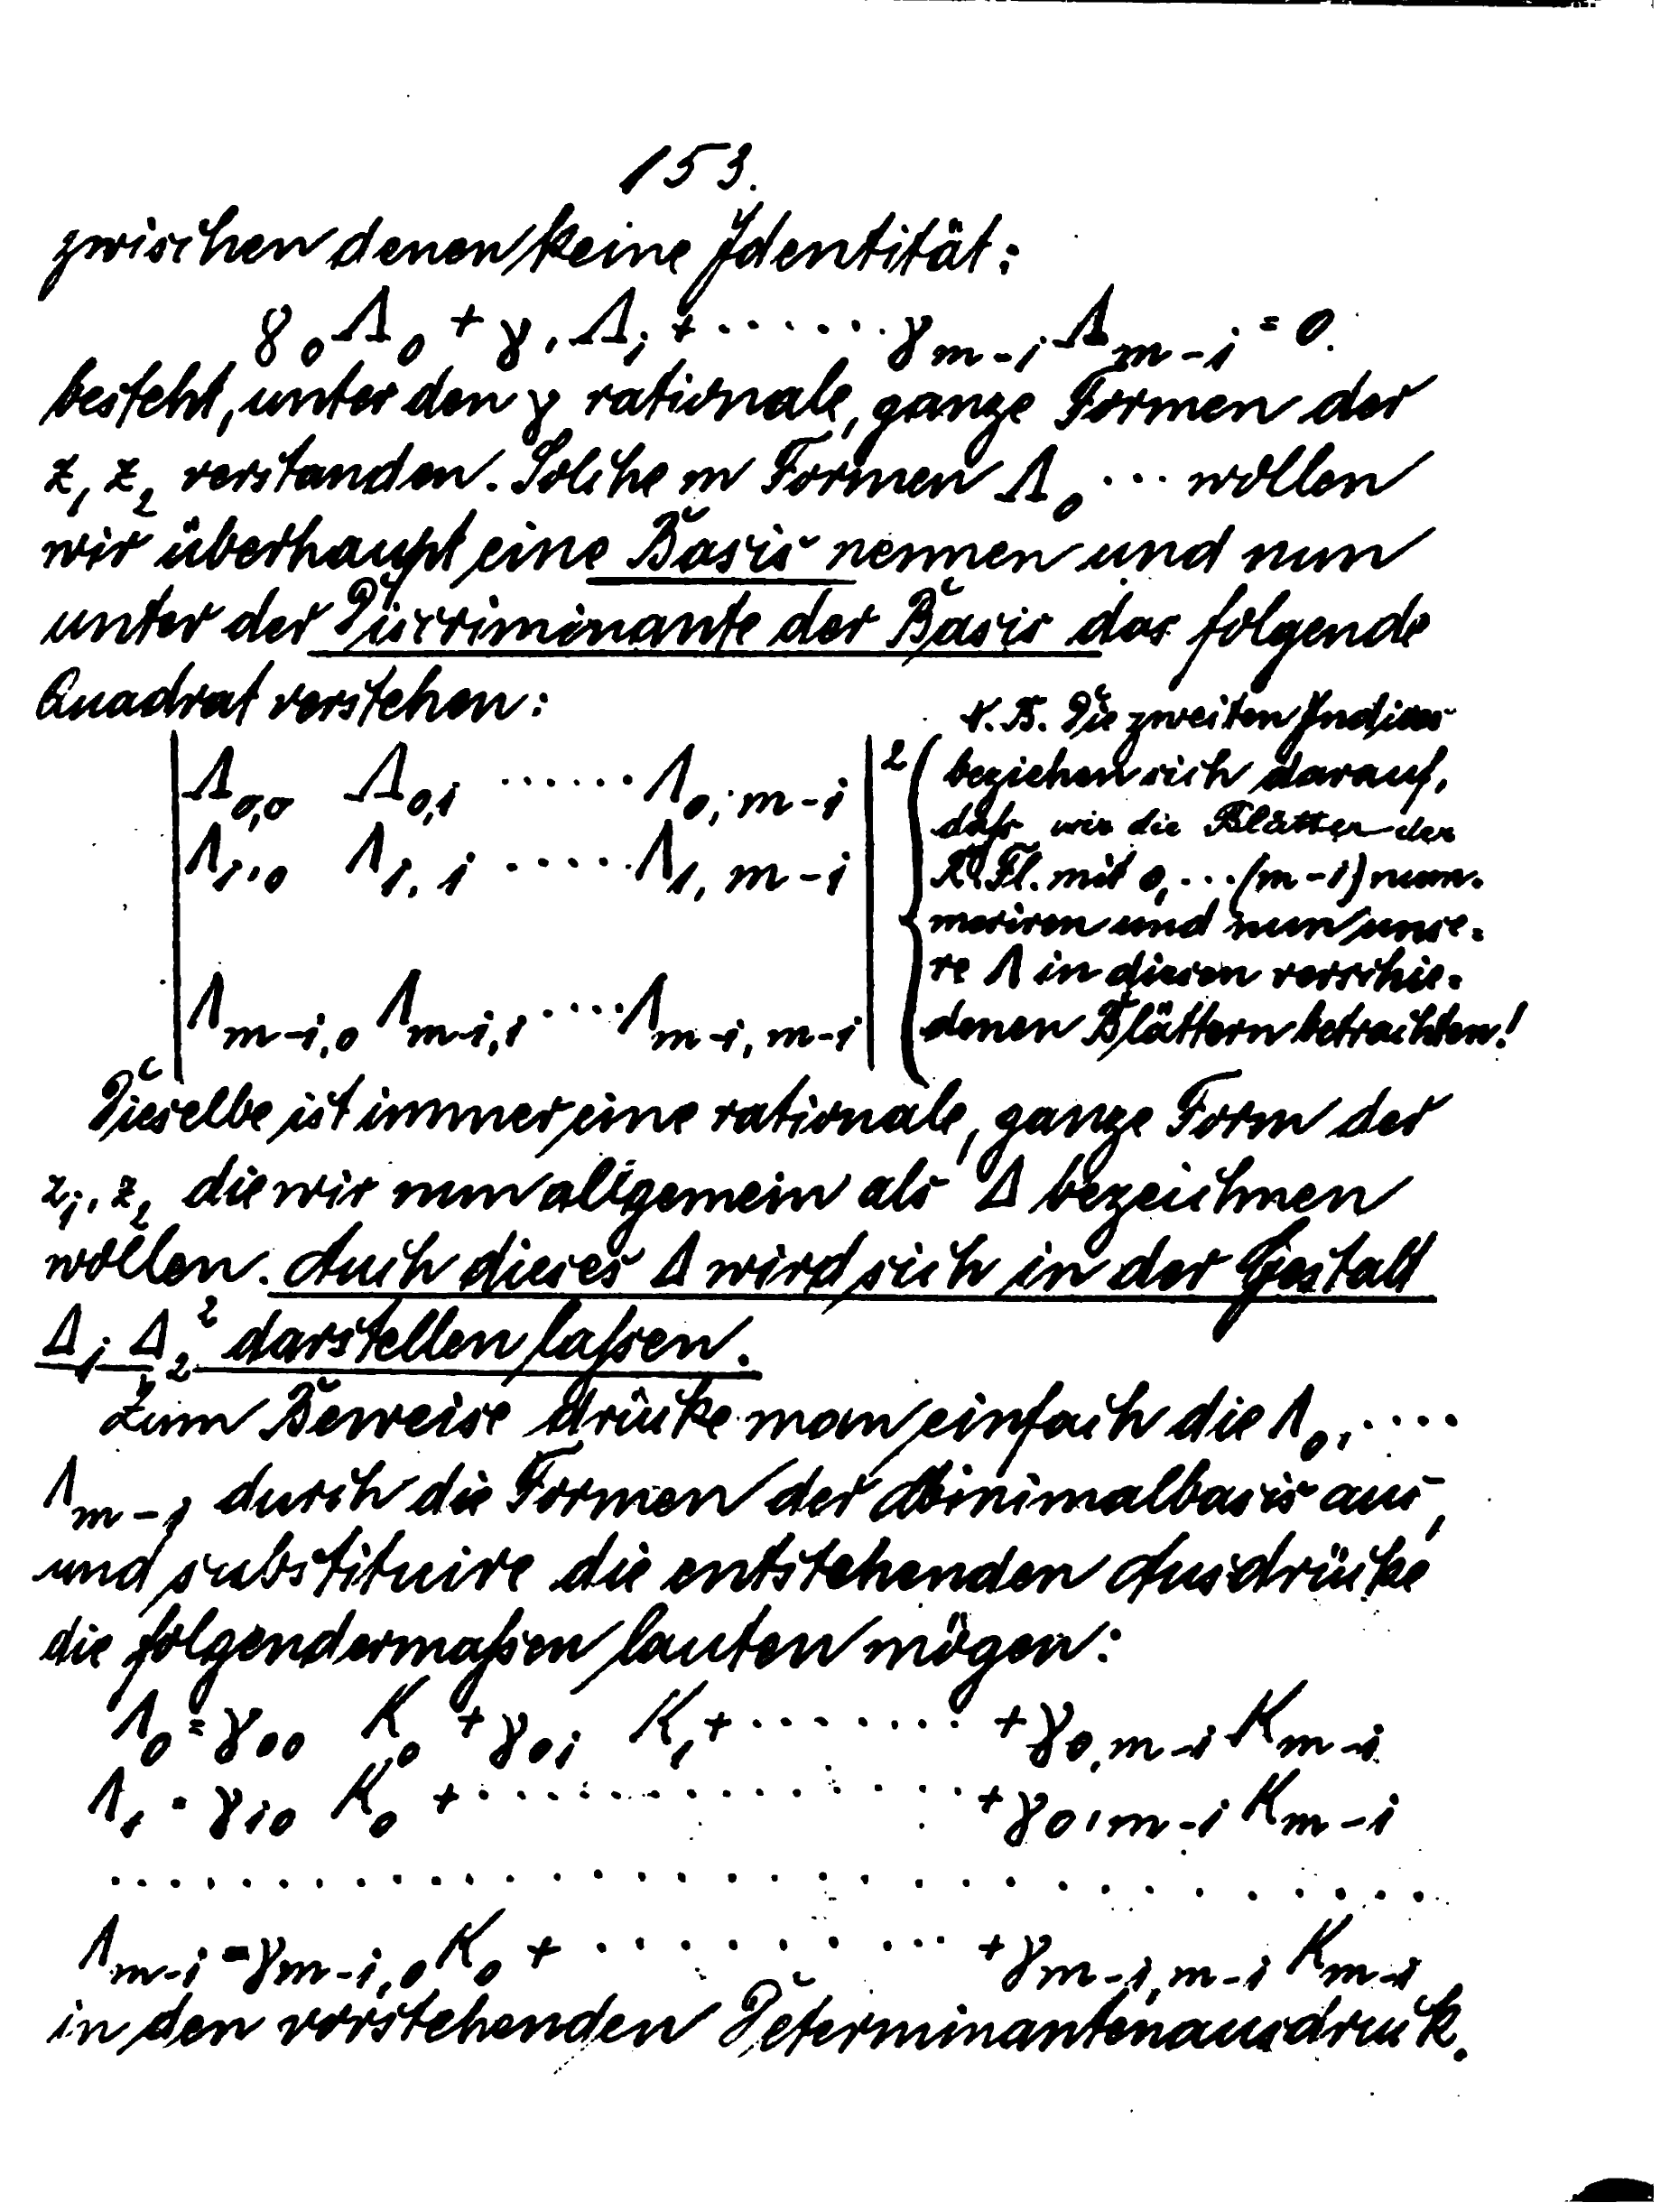 153.
zwischen denen keine Identität:
γ₀Λ₀ + γ₁Λ₁ + ······ γₘ₋₁Λₘ₋₁ = 0.
besteht, unter den γ rationale, ganze Formen der
z₁ z₂ verstanden. Solche m Formen Λ₀ ··· wollen
wir überhaupt eine Basis nennen und nun
unter der Discriminante der Basis das folgende
Quadrat verstehen:
| Λ₀,₀ Λ₀,₁ ······ Λ₀,ₘ₋₁ |²
| Λ₁,₀ Λ₁,₁ ····· Λ₁,ₘ₋₁ |
| Λₘ₋₁,₀ Λₘ₋₁,₁ ···· Λₘ₋₁,ₘ₋₁ |
N. B. Die zweiten Indices
beziehen sich darauf,
dafs wir die Blätter der
R. Fl. mit 0, ··· (m-1) num-
meriren und nun unse-
re Λ in diesen verschie-
denen Blättern betrachten!
Dieselbe ist immer eine rationale, ganze Form der
z₁, z₂ die wir nun allgemein als Δ bezeichnen
wollen. Auch dieses Δ wird sich in der Gestalt
Δ₁ Δ₂² darstellen lafsen.
Zum Beweise drücke man einfach die Λ₀, ····
Λₘ₋₁ durch die Formen der Minimalbasis aus,
und substituire die entstehenden Ausdrücke
die folgendermafsen lauten mögen:
Λ₀ = γ₀₀ K₀ + γ₀₁ K₁ + ······· + γ₀,ₘ₋₁ Kₘ₋₁
Λ₁ = γ₁₀ K₀ + ·············· + γ₀,ₘ₋₁ Kₘ₋₁
······························
Λₘ₋₁ = γₘ₋₁,₀ K₀ + ·········· + γₘ₋₁,ₘ₋₁ Kₘ₋₁
in den vorstehenden Determinantenausdruck.